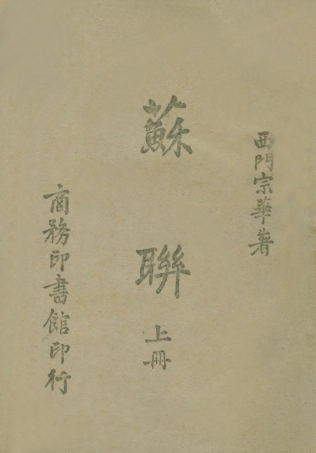 西門宗華著
蘇聯
上冊
商務印書館印行